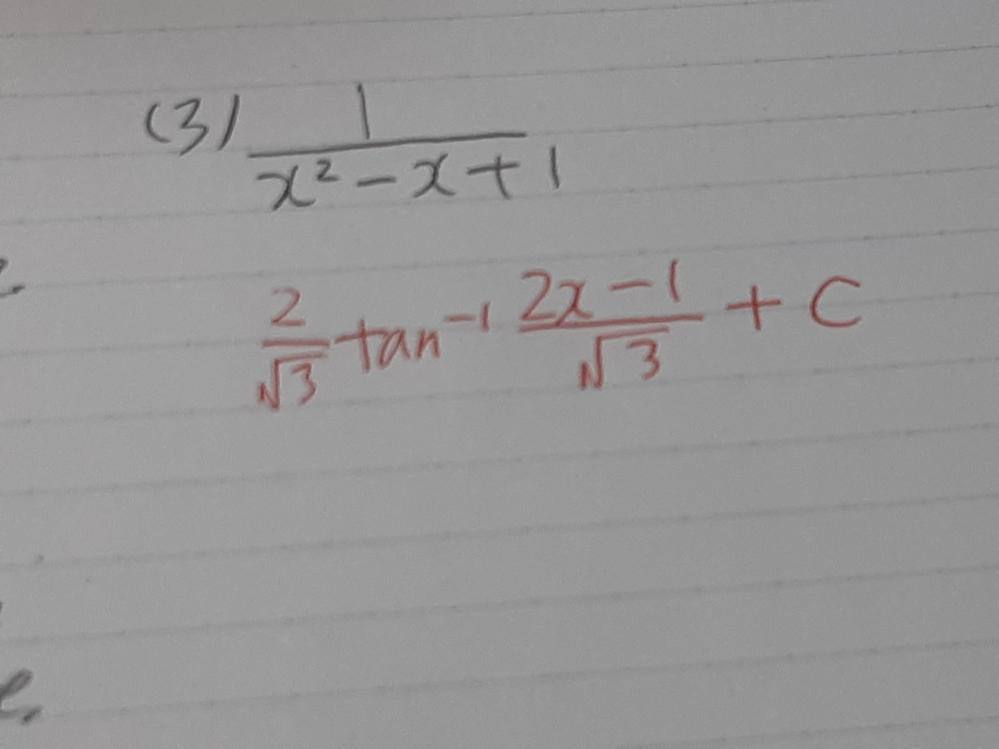 (3) 1/(x² - x + 1)
2/√3 tan⁻¹ (2x - 1)/√3 + C